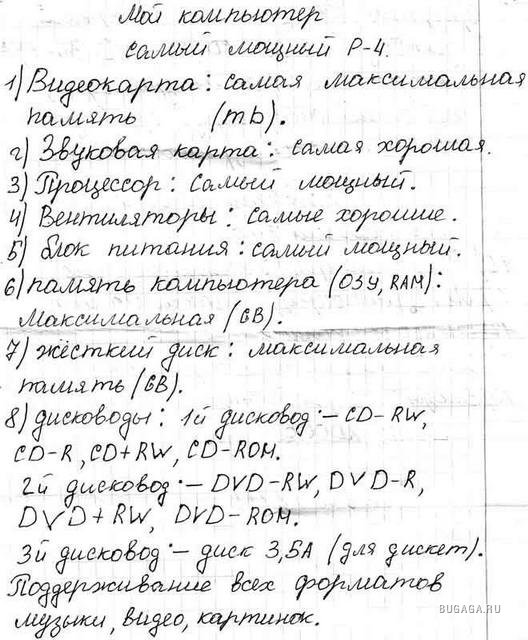 Мой компьютер
самый мощный P-4.
1) Видеокарта: самая максимальная
память (mb).
2) Звуковая карта: самая хорошая.
3) Процессор: самый мощный.
4) Вентиляторы: самые хорошие.
5) блок питания: самый мощный.
6) память компьютера (ОЗУ, RAM):
Максимальная (GB).
7) жёсткий диск: максимальная
память (GB).
8) дисководы: 1й дисковод – CD-RW,
CD-R, CD+RW, CD-ROM.
2й дисковод – DVD-RW, DVD-R,
DVD+RW, DVD-ROM.
3й дисковод – диск 3,5A (для дискет).
Поддерживание всех форматов
музыки, видео, картинок.
BUGAGA.RU